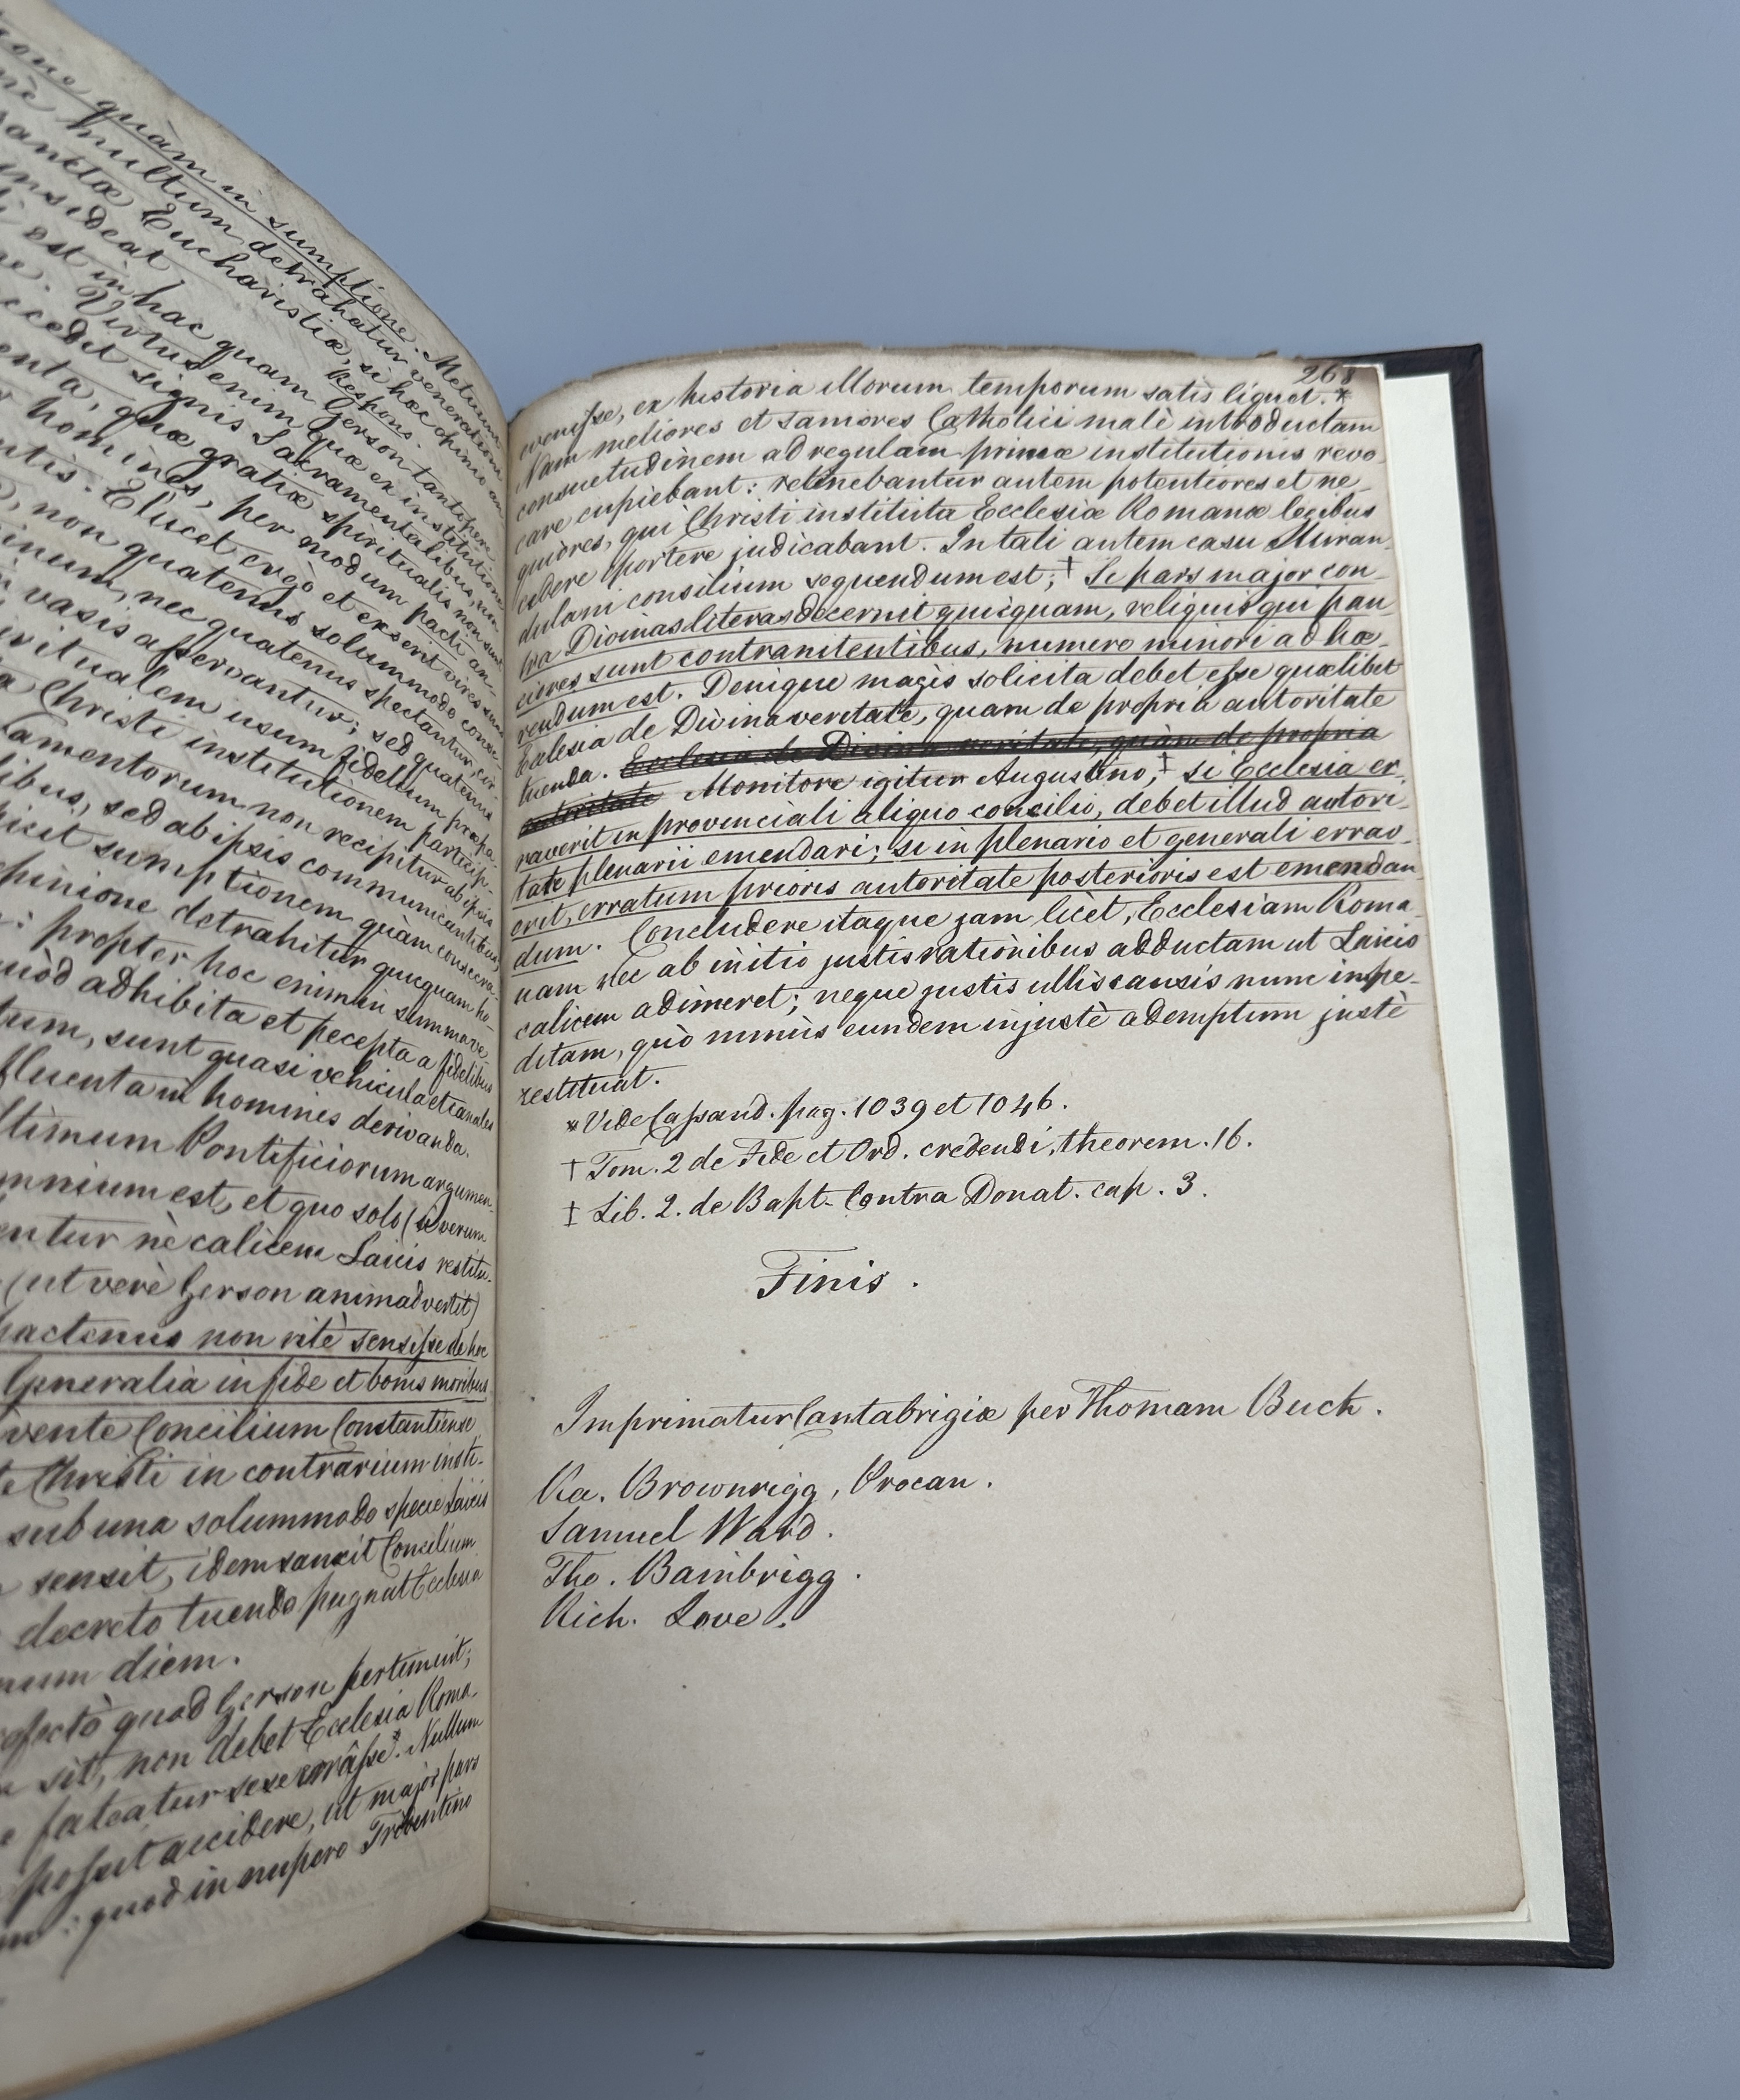 quàm in sumptione. Metuunt
multum detrahatur venerationi
sanctæ Eucharistiæ, si hæc opinio an-
insideat. Respons.
est in hac quam Gerson tantopere
Virtus enim quæ ex institutione
accedit signis Sacramentalibus, non
quæ gratiæ spiritualis non sunt
homines, per modum pacti an-
Elucet ergò et exserit vires suas
non quatenus solummodo conse-
nec quatenus spectantur, cir-
vasis asservantur; sed quatenus
spiritualem usum fidelium præpa-
Christi institutionem particip-
Sacramentorum non recipitur ab ipsis
sed ab ipsis communicantibus,
sumptionem quàm consecra-
opinione detrahitur quicquam ho-
propter hoc enim in summa ve-
quòd adhibita et pecepta a fidelibus
sunt quasi vehicula et canales
fluenta in homines derivanda.
ultimum Pontificiorum argumen-
omnium est, et quo solo (si verum
nè calicem Laicis restitu-
(ut verè Gerson animadvertit)
hactenus non ritè sensisse de hoc
Generalia in fide et bonis moribus
Concilium Constantiense
Christi in contrarium insti-
sub una solummodo specie Laicis
sensit, idem sanxit Concilium
decreto tuendo pugnat Ecclesia
diem.
quod Gerson pertimuit;
sit, non debet Ecclesia Roma-
fateatur sese errâsse.* Nullum
possit accidere, ut major pars
quod in nupero Tridentino
268
evenisse, ex historia illorum temporum satis liquet.*
Nam meliores et saniores Catholici malè introductam
consuetudinem ad regulam primæ institutionis revo-
care cupiebant: retinebantur autem potentiores et ne-
quiores, qui Christi instituta Ecclesiæ Romanæ legibus
cedere oportere judicabant. In tali autem casu Miran-
dulani consilium sequendum est;† Si pars major con-
tra Divinas literas decernit quicquam, reliquis qui pau
ciores sunt contranitentibus, numero minori adhæ-
rendum est. Denique magis solicita debet esse quælibet
Ecclesia de Divina veritate, quam de propria autoritate
tuenda. Ecclesia de Divina veritate, quàm de propria
autoritate Monitore igitur Augustino,‡ si Ecclesia er-
raverit in provinciali aliquo concilio, debet illud autori-
tate plenarii emendari; si in plenario et generali errav-
erit, erratum prioris autoritate posterioris est emendan
dum. Concludere itaque jam licèt, Ecclesiam Roma-
nam nec ab initio justis rationibus adductam ut Laicis
calicem adimeret; neque justis ullis causis nunc impe-
ditam, quò minùs eundem injustè ademptum justè
restituat.
* Vide Cassand. pag. 1039 et 1046.
† Tom. 2 de Fide et Ord. credendi, theorem. 16.
‡ Lib. 2. de Bapt. Contra Donat. cap. 3.
Finis.
Imprimatur Cantabrigiæ per Thomam Buck.
Ra. Brownrigg, Procan.
Samuel Ward.
Tho. Bainbrigg.
Rich. Love.